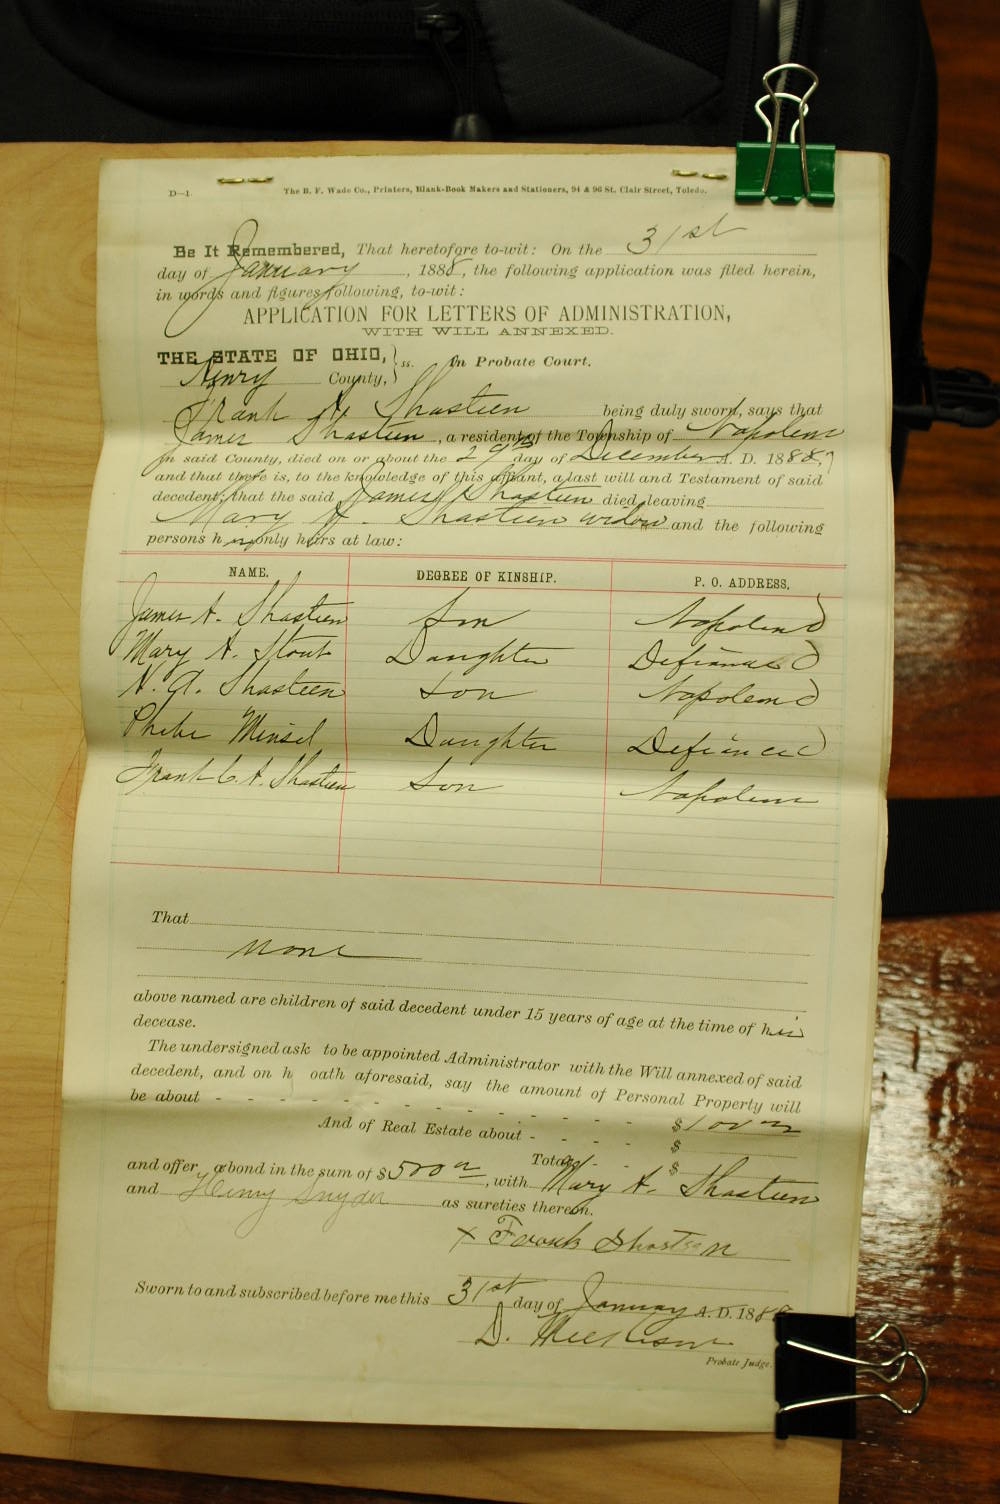 D—1.
The B. F. Wade Co., Printers, Blank-Book Makers and Stationers, 94 & 96 St. Clair Street, Toledo.
Be It Remembered, That heretofore to-wit: On the 31st
day of January, 1888, the following application was filed herein,
in words and figures following, to-wit:
APPLICATION FOR LETTERS OF ADMINISTRATION,
WITH WILL ANNEXED.
THE STATE OF OHIO, } ss. In Probate Court.
Henry County,
Frank A. Shasteen being duly sworn, says that
James Shasteen, a resident of the Township of Napoleon
in said County, died on or about the 29th day of December A. D. 1887,
and that there is, to the knowledge of this affiant, a last will and Testament of said
decedent; that the said James Shasteen died leaving
Mary A. Shasteen widow and the following
persons h only heirs at law:
NAME. DEGREE OF KINSHIP. P. O. ADDRESS.
James A. Shasteen Son Napoleon O
Mary A. Stout Daughter Defiance O
N. A. Shasteen Son Napoleon O
Phebe Minsel Daughter Defiance O
Frank C. A. Shasteen Son Napoleon
That
none
above named are children of said decedent under 15 years of age at the time of his
decease.
The undersigned ask to be appointed Administrator with the Will annexed of said
decedent, and on h oath aforesaid, say the amount of Personal Property will
be about - - - - - - - - - - - - - $100
And of Real Estate about - - - - $
Total - - - $
and offer a bond in the sum of $500, with Mary A. Shasteen
and Henry Snyder as sureties thereon.
x Frank Shasteen
Sworn to and subscribed before me this 31st day of January A. D. 1888
D.
Probate Judge.